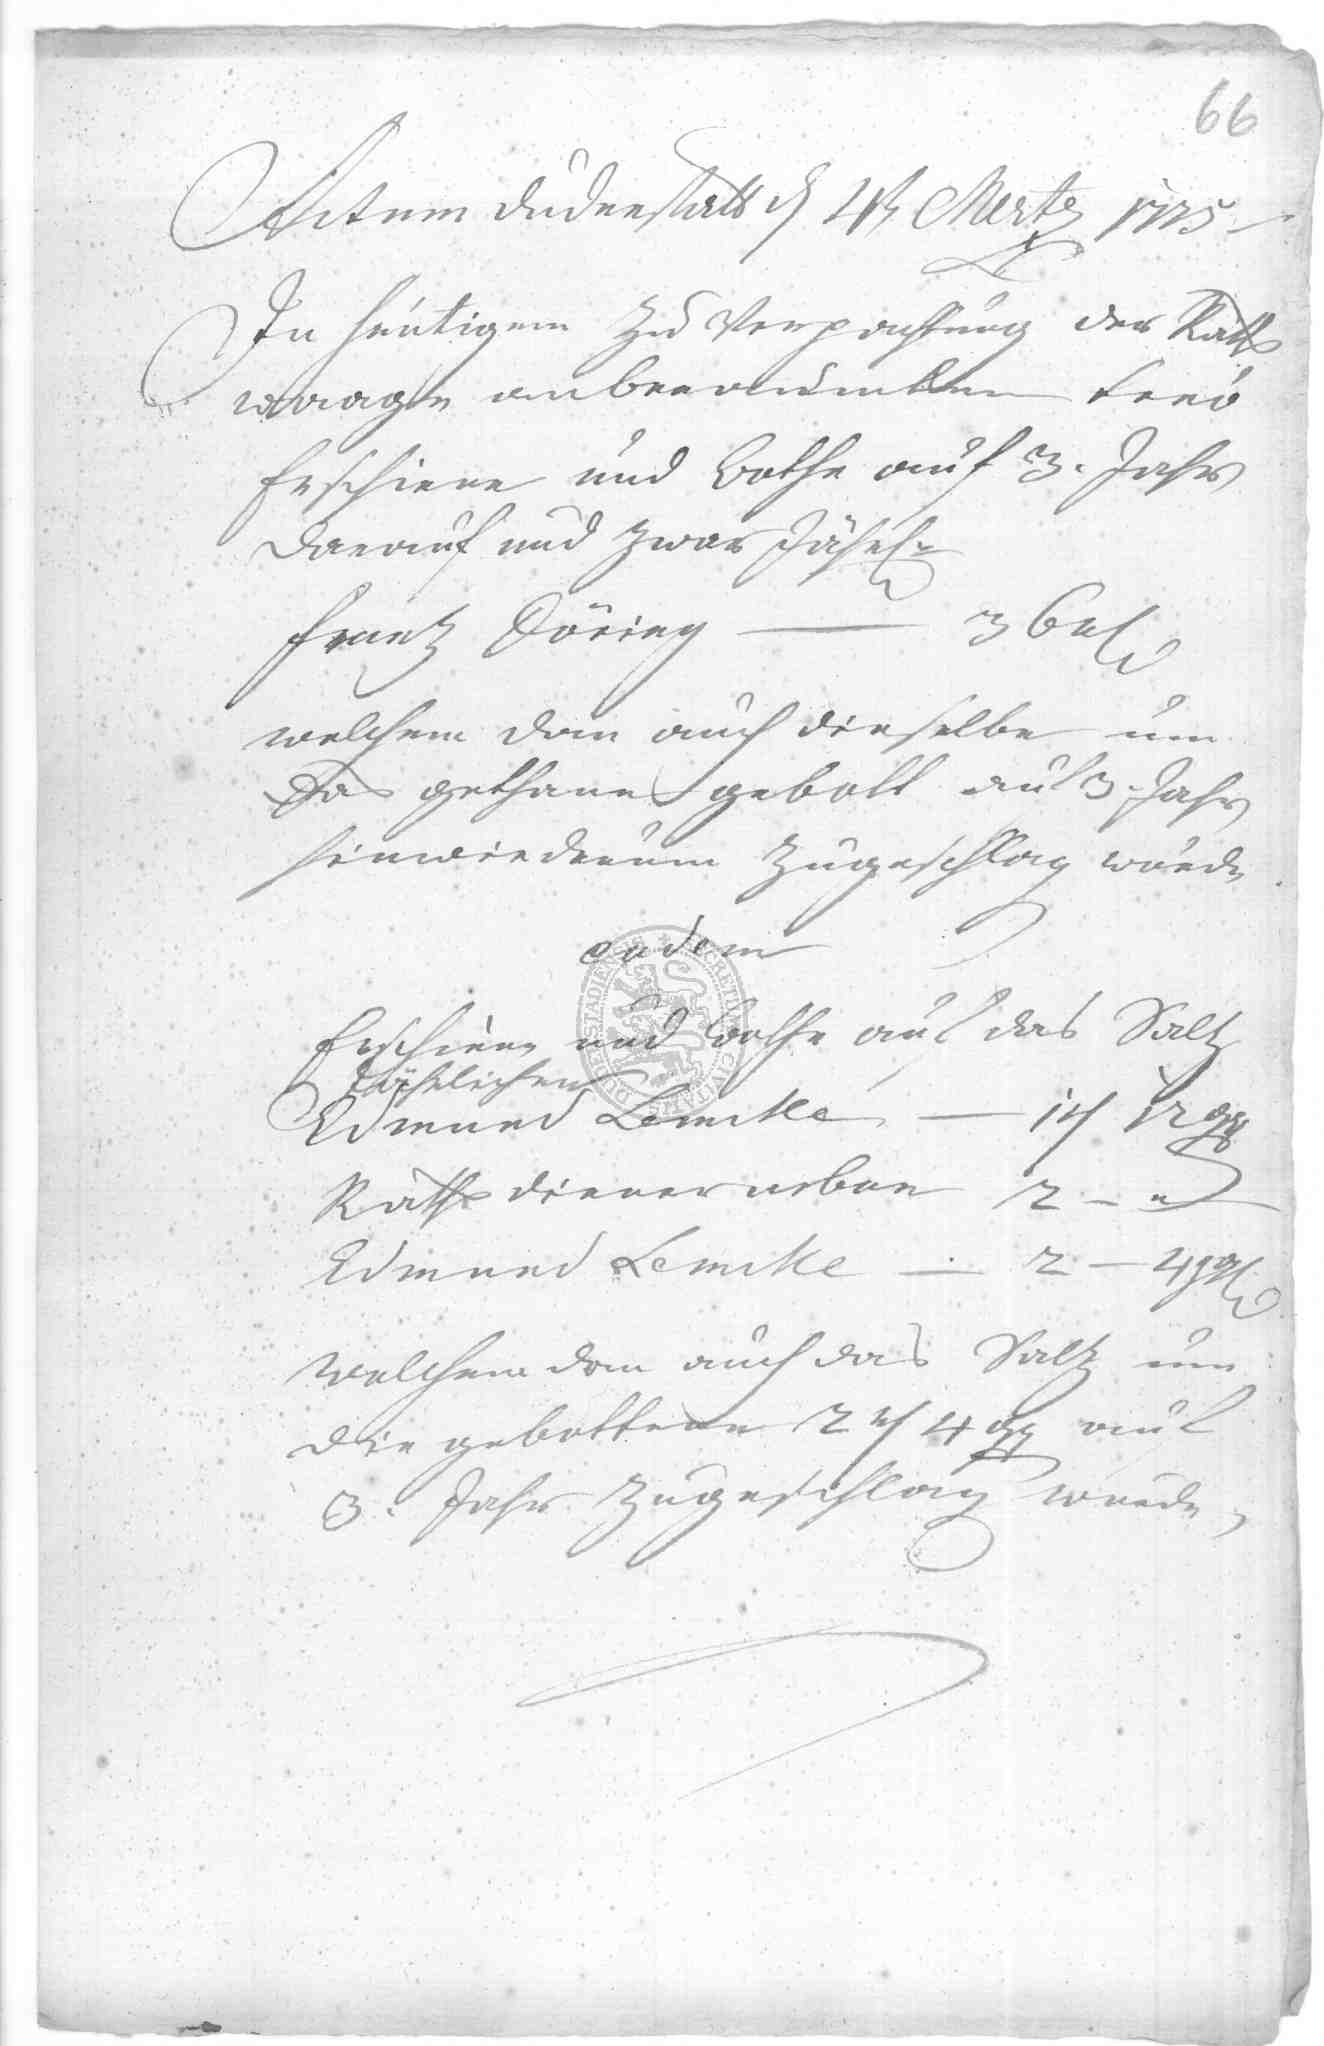 66
Actum Duderstatt d 4t Mertz 1725
In heutigem zu Verpachtung der Raths
waage anberaumbten term
Erschiene und bothe auf 3. Jahr
darauf und zwar Jährl.
Frantz Döring — 36
welchem dan auch dieselbe um
das gethane gebott auf 3. Jahr
hinwiederum zugeschlag worde
eodem
Erschiene und bothe auf das Saltz
Jährlichen
Edmund Lemcke — 1 12 gg
Raths diener neben 2 — "
Edmund Lemcke — 2 — 4 gg
welchem dan auch das Saltz um
die gebottene 2 4 gg auf
3. Jahr zugeschlag worde